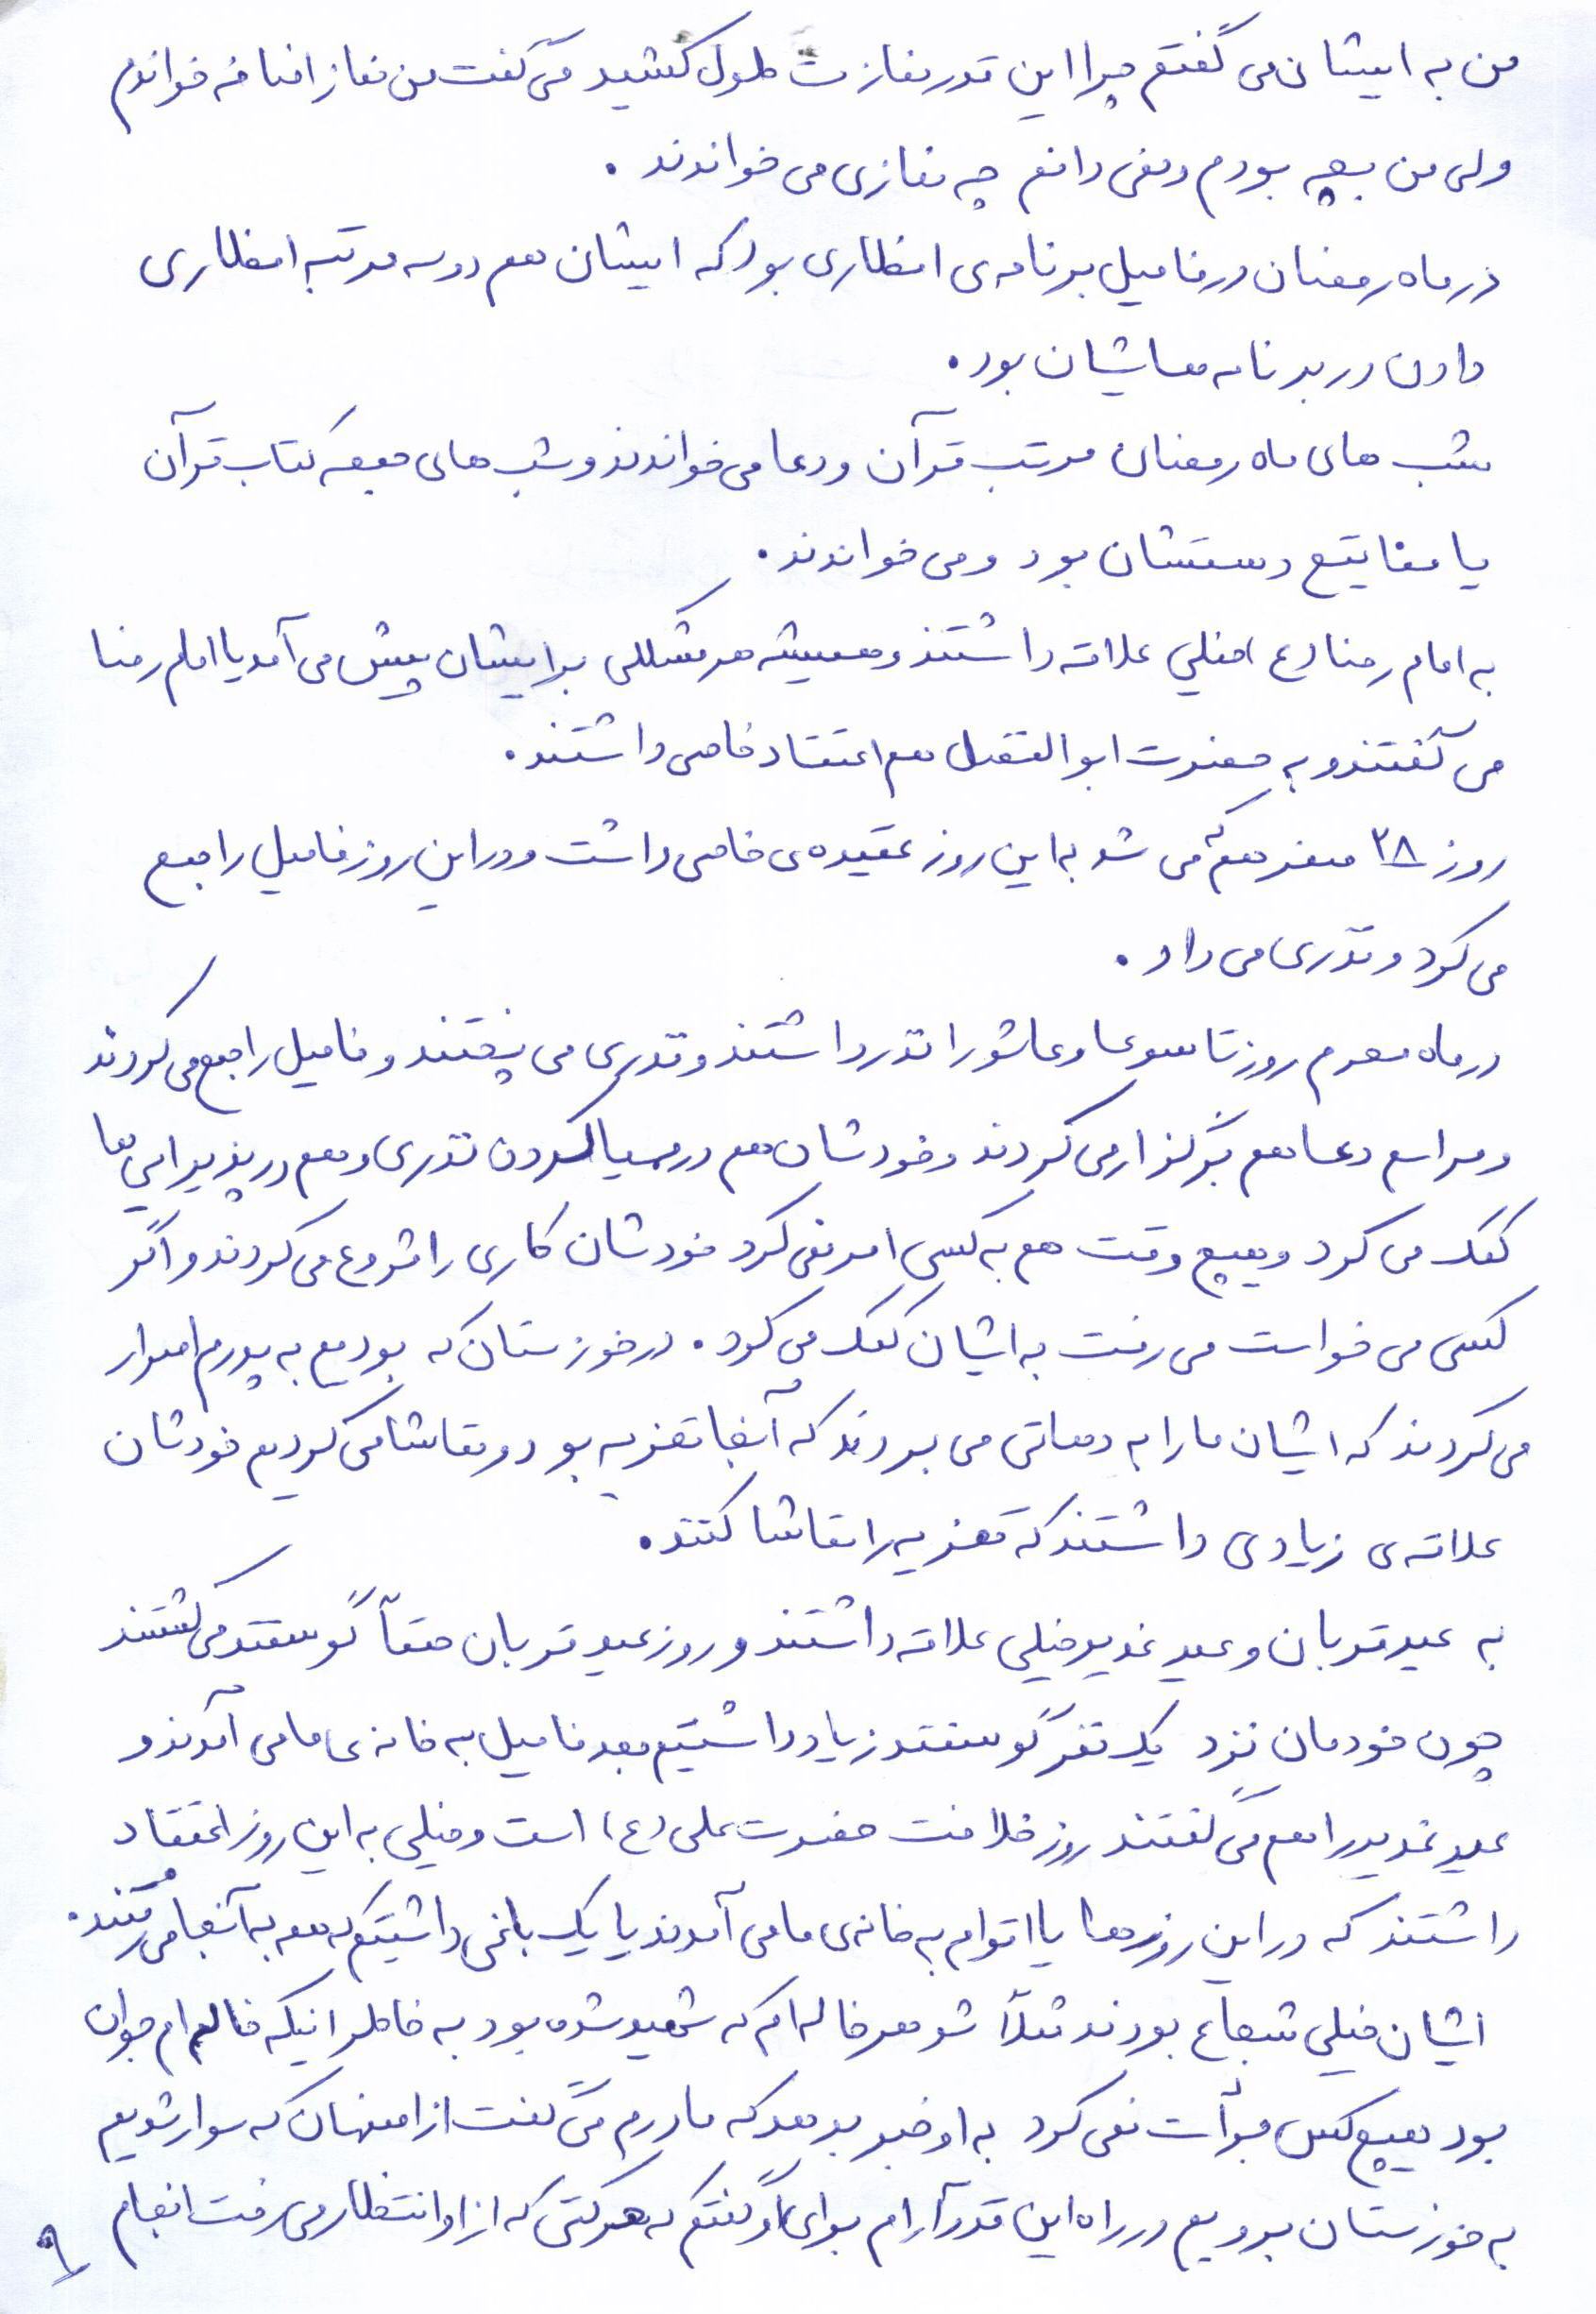 من به ایشان می گفتم چرا این قدر نمازت طول کشید می گفت من نماز اضافه خواندم
ولی من بچه بودم و نمی دانم چه نمازی می خواندند .
در ماه رمضان در فامیل برنامه ی افطاری بود که ایشان هم دو سه مرتبه افطاری
دادن در برنامه هاشان بود .
شب های ماه رمضان مرتب قرآن و دعا می خواندند و شب های جمعه کتاب قرآن
یا مفاتیح دستشان بود و می خواندند .
به امام رضا (ع) خیلی علاقه داشتند و همیشه هر مشکلی برایشان پیش می آمد یا امام رضا
می گفتند و به حضرت ابوالفضل هم اعتقاد خاصی داشتند .
روز ۲۸ صفر هم که می شد به این روز عقیده ی خاصی داشت و در این روز فامیل را جمع
می کرد و نذری می داد .
در ماه محرم روز تاسوعا و عاشورا نذر داشتند و نذری می پختند و فامیل را جمع می کردند
و مراسم دعا هم برگزار می کردند و خودشان هم در مهیا کردن نذری و هم در پذیرایی ها
کمک می کرد و هیچ وقت هم به کسی امر نمی کرد خودشان کاری را شروع می کردند و اگر
کسی می خواست می رفت به ایشان کمک می کرد . در خوزستان که بودیم به پدرم اصرار
می کردند که ایشان ما را به دهاتی می بردند که آنجا تعزیه بود و تماشا می کردیم خودشان
علاقه ی زیادی داشتند که تعزیه را تماشا کنند .
به عید قربان و عید غدیر خیلی علاقه داشتند و روز عید قربان حتماً گوسفند می کشتند
چون خودمان نزد یک نفر گوسفند زیاد داشتیم بعد فامیل به خانه ی ما می آمدند و
عید غدیر را هم می گفتند روز خلافت حضرت علی (ع) است و خیلی به این روز اعتقاد
داشتند که در این روزها یا اقوام به خانه ی ما می آمدند یا یک باغی داشتیم که همه به آنجا می رفتند .
ایشان خیلی شجاع بودند مثلاً شوهر خاله ام که شهید شده بود به خاطر اینکه خاله ام جوان
بود هیچ کس جرأت نمی کرد به او خبر بدهد که مادرم می گفت از اصفهان که سوار شدیم
به خوزستان برویم در راه این قدر آرام برای او گفتم که هر حرکتی که از او انتظار می رفت انجام
۹